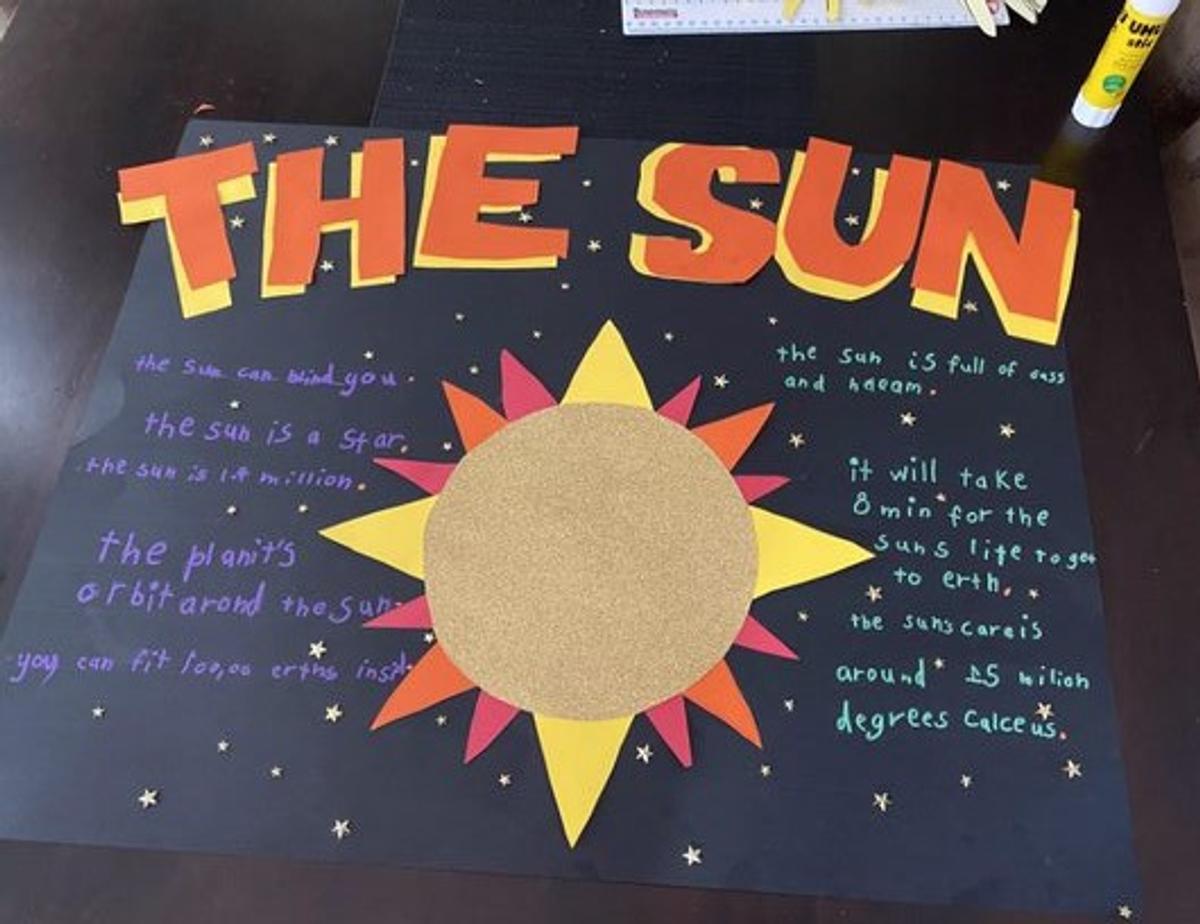 THE SUN
the sun can blind you.
the sun is a star.
the sun is 1.4 million.
the planit's
orbit arond the sun.
you can fit 100,00 erths
the sun is full of
and
it will take
8 min for the
suns life to get
to erth.
the sun's care is
around 15 milion
degrees calceus.
UHU
stic